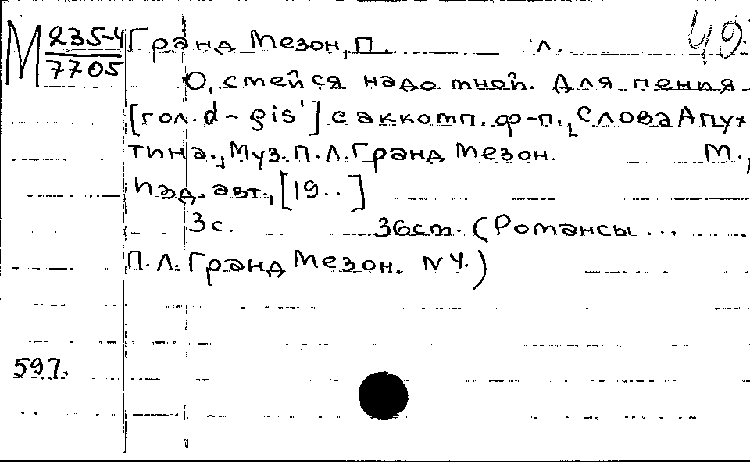 М 235-4 / 7705
Гранд Мезон, П. Л. 49
О, смейся надо мной. Для пения
[гол. d - gis'] с аккомп. ф-п., Слова Апух
тина., Муз. П.Л. Гранд Мезон. М.,
Изд. авт., [19..]
3 с. 36 см. (Романсы ...
П.Л. Гранд Мезон. N 4.)
597.